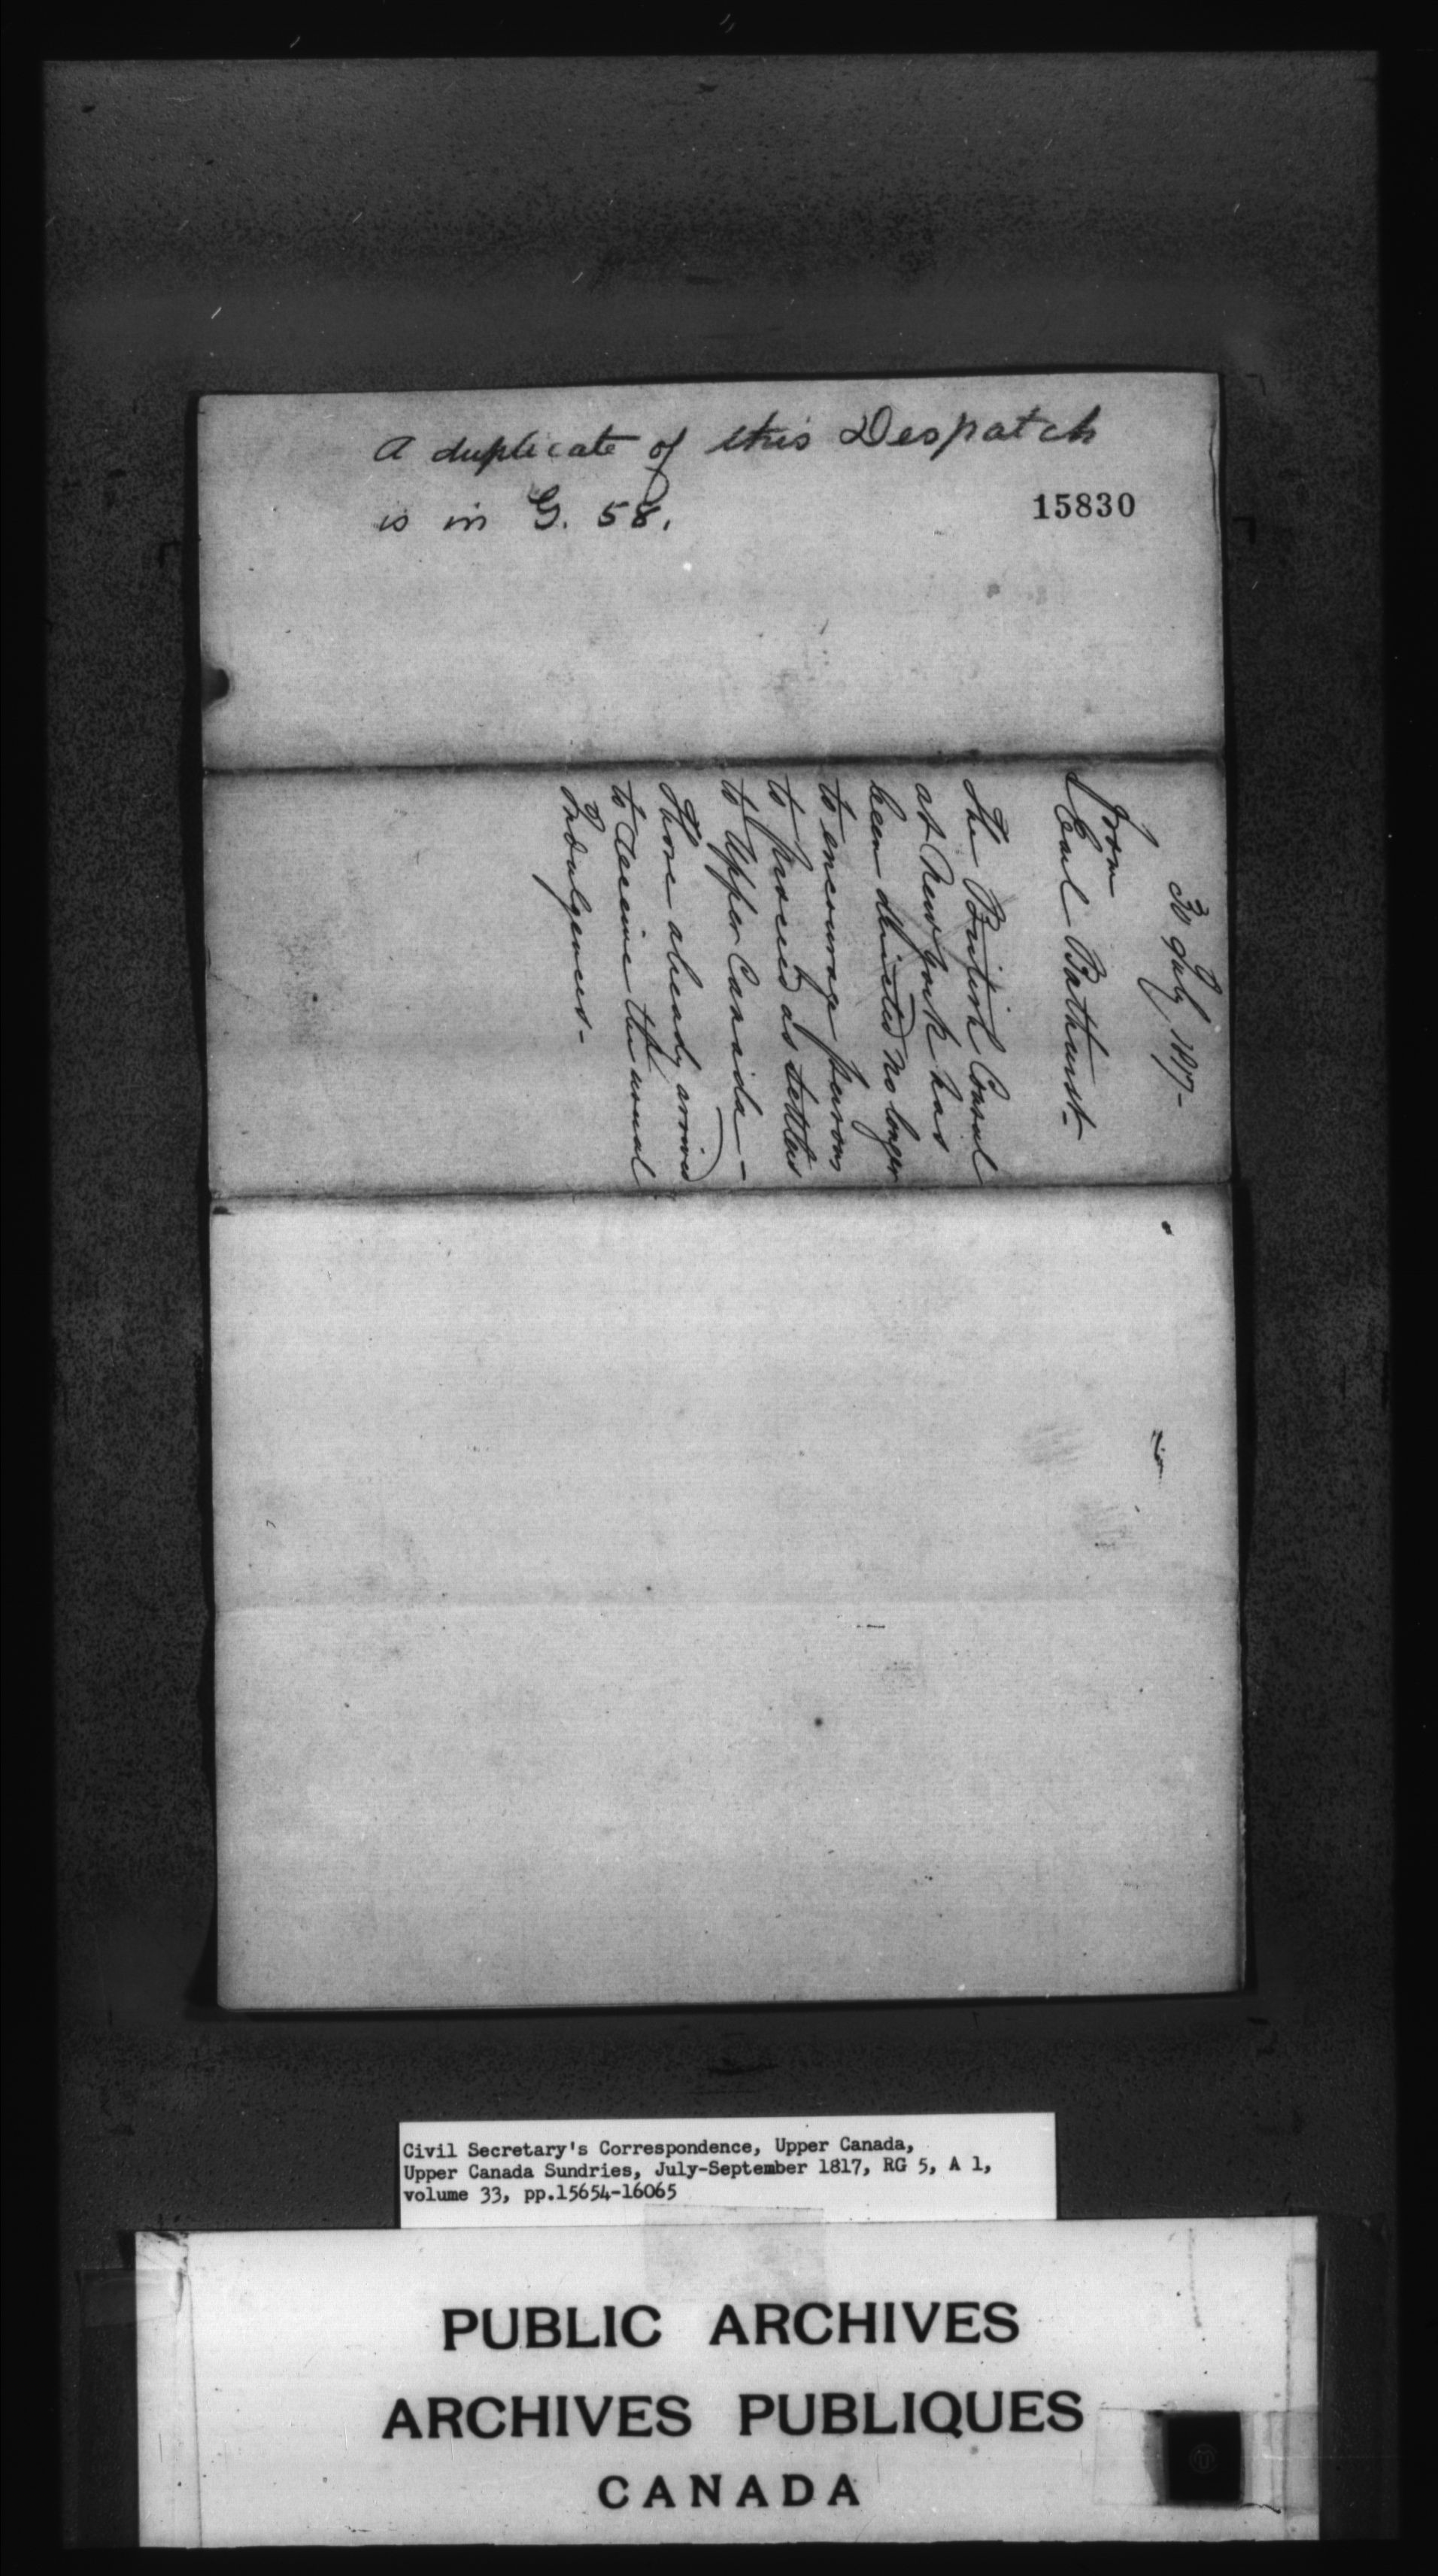 A duplicate of this Despatch
is in G. 58.
15830
30 July 1817-
From
Earl Bathurst-
The British Consul
at New York has
been directed no longer
to encourage persons
to proceed as settlers
to Upper Canada-
Those already arrived
to receive the usual
Indulgences-
Civil Secretary's Correspondence, Upper Canada,
Upper Canada Sundries, July-September 1817, RG 5, A 1,
volume 33, pp.15654-16065
PUBLIC ARCHIVES
ARCHIVES PUBLIQUES
CANADA